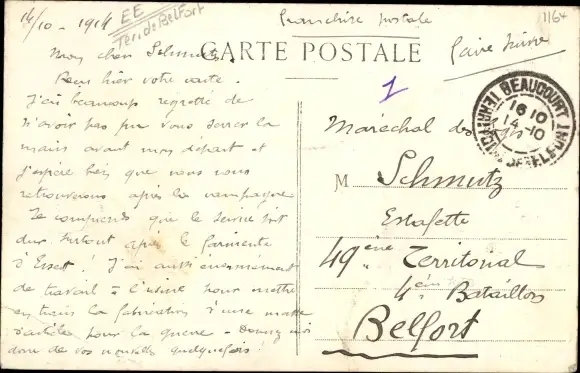 14/10 - 1914
EE
Terr de Belfort
Franchise postale
1164
CARTE POSTALE
Faire suivre
Mon cher Schmutz,
Reçu hier votre carte.
J'ai beaucoup regretté de
n'avoir pas pu vous serrer la
main avant mon départ et
j'espère bien que nous nous
retrouverons après la campagne
Je comprends que le service soit
dur surtout après le
d'Essert ! J'ai aussi énormément
de travail à l'usine pour mettre
en train la fabrication d'une masse
d'articles pour la guerre - Donnez moi
donc de vos nouvelles quelquefois !
1
BEAUCOURT
16 10
14 -10
TERRIT. DE BELFORT
Maréchal des Logis
M Schmutz
Estafette
49ème Territorial
4ème Bataillon
Belfort